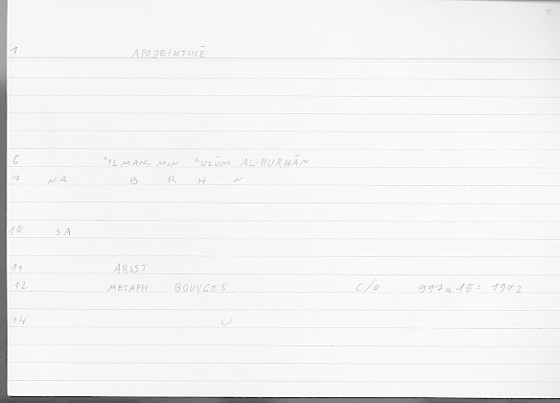 1 APODEIKTIKĒ
6 ʿILMAN MIN ʿULŪM AL-BURHĀN
7 NA B R H N
10 SA
11 ARIST
12 METAPH BOUYGES C/O 997a18= 1992
14 U